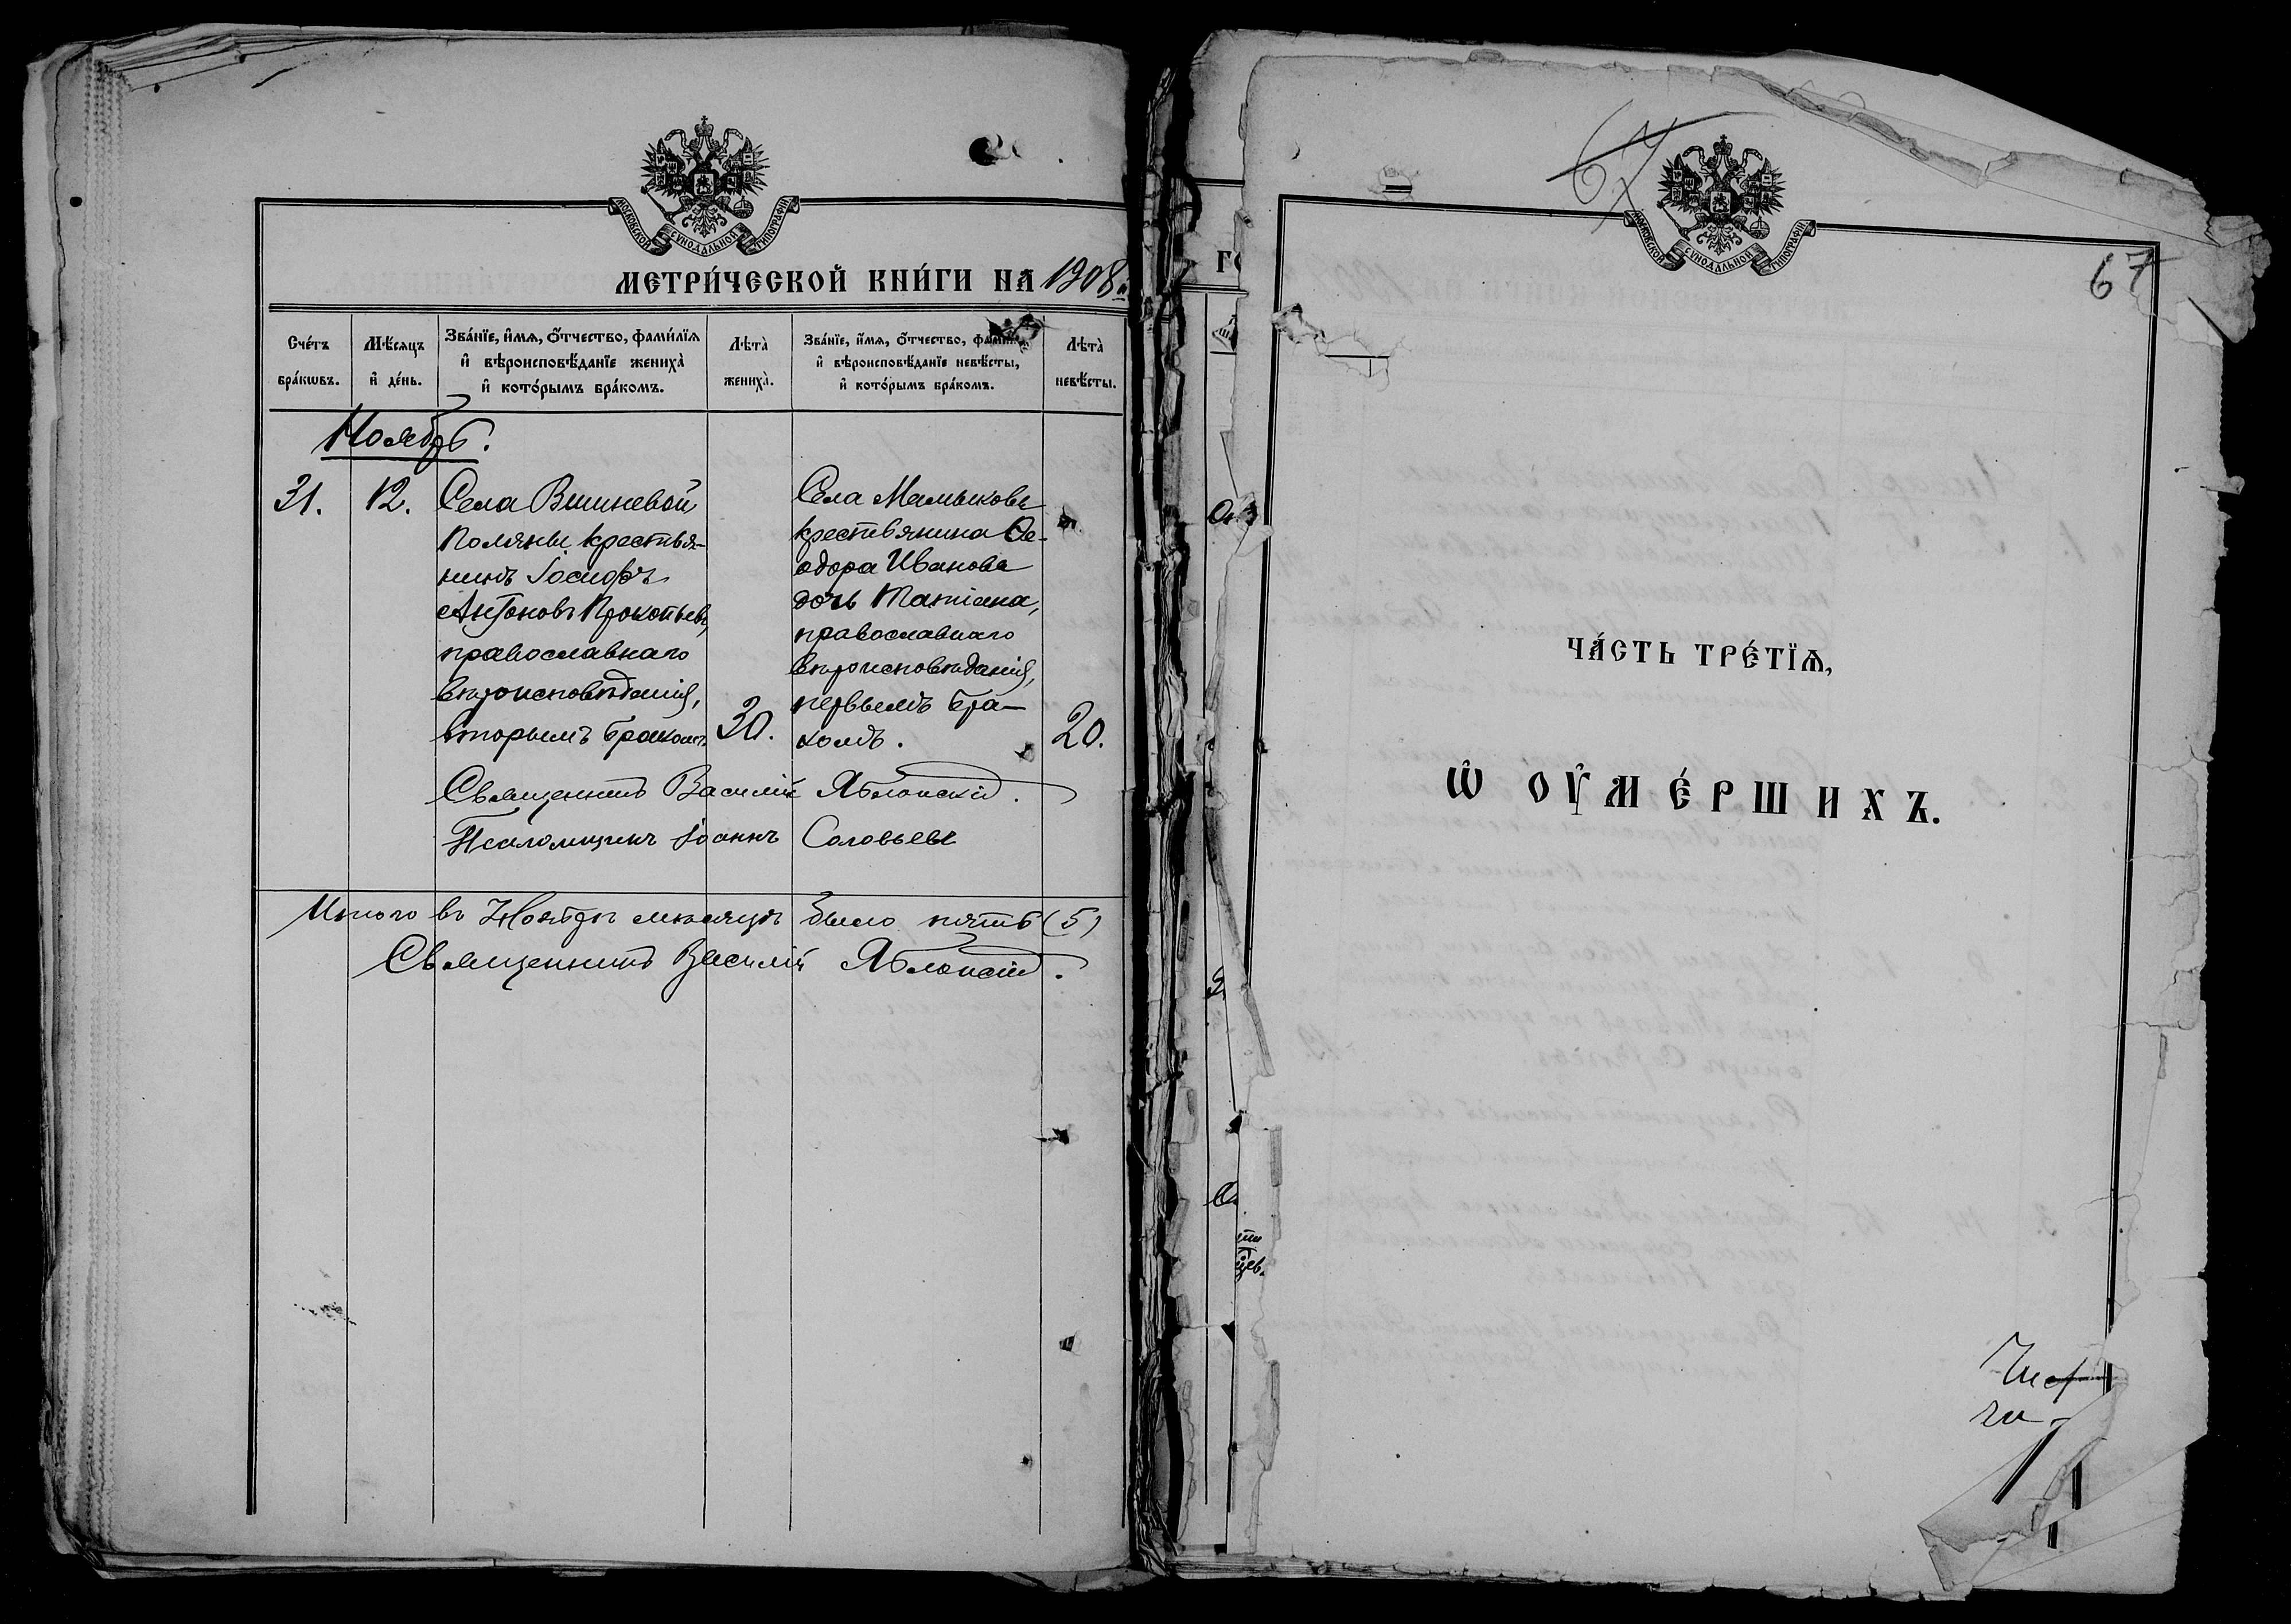 МОСКОВСКОЙ СУНОДАЛЬНОЙ ТИПОГРАФІИ
МЕТРИ́ЧЕСКОЙ КНИ́ГИ НА 1908
Сче́тъ бра́кωвъ.
Мѣ́сяцъ и҆ де́нь.
Зва́нїе, и҆́мѧ, ѻ҆́тчество, фами́лїѧ
и҆ вѣроисповѣ́данїе жениха̀
и҆ кото́рымъ бра́комъ.
Лѣта̀ жениха̀.
Зва́нїе, и҆́мѧ, ѻ҆́тчество,
и҆ вѣроисповѣ́данїе невѣ́сты,
и҆ кото́рымъ бра́комъ.
Лѣта̀ невѣ́сты.
Ноябрь.
31.
12.
Села Вишневой
Поляны крестья-
нинъ Іосифъ
Антоновъ Прокопьевъ,
православнаго
вѣроисповѣданія,
вторымъ бракомъ
30.
Села Мамыкова
крестьянина Ѳе-
одора Иванова
дочь Татіана,
православнаго
вѣроисповѣданія,
первымъ бра-
комъ.
20.
Священникъ Василій Яблонскій.
Псаломщикъ Іоаннъ Соловьевъ
Итого въ Ноябрѣ мѣсяцѣ было пять (5)
Священникъ Василій Яблонскій.
67
МОСКОВСКОЙ СУНОДАЛЬНОЙ ТИПОГРАФІИ
67
ЧА́СТЬ ТРЕ́ТЇѦ,
Ѡ҆ ОУ҆МЕ́РШИХЪ.